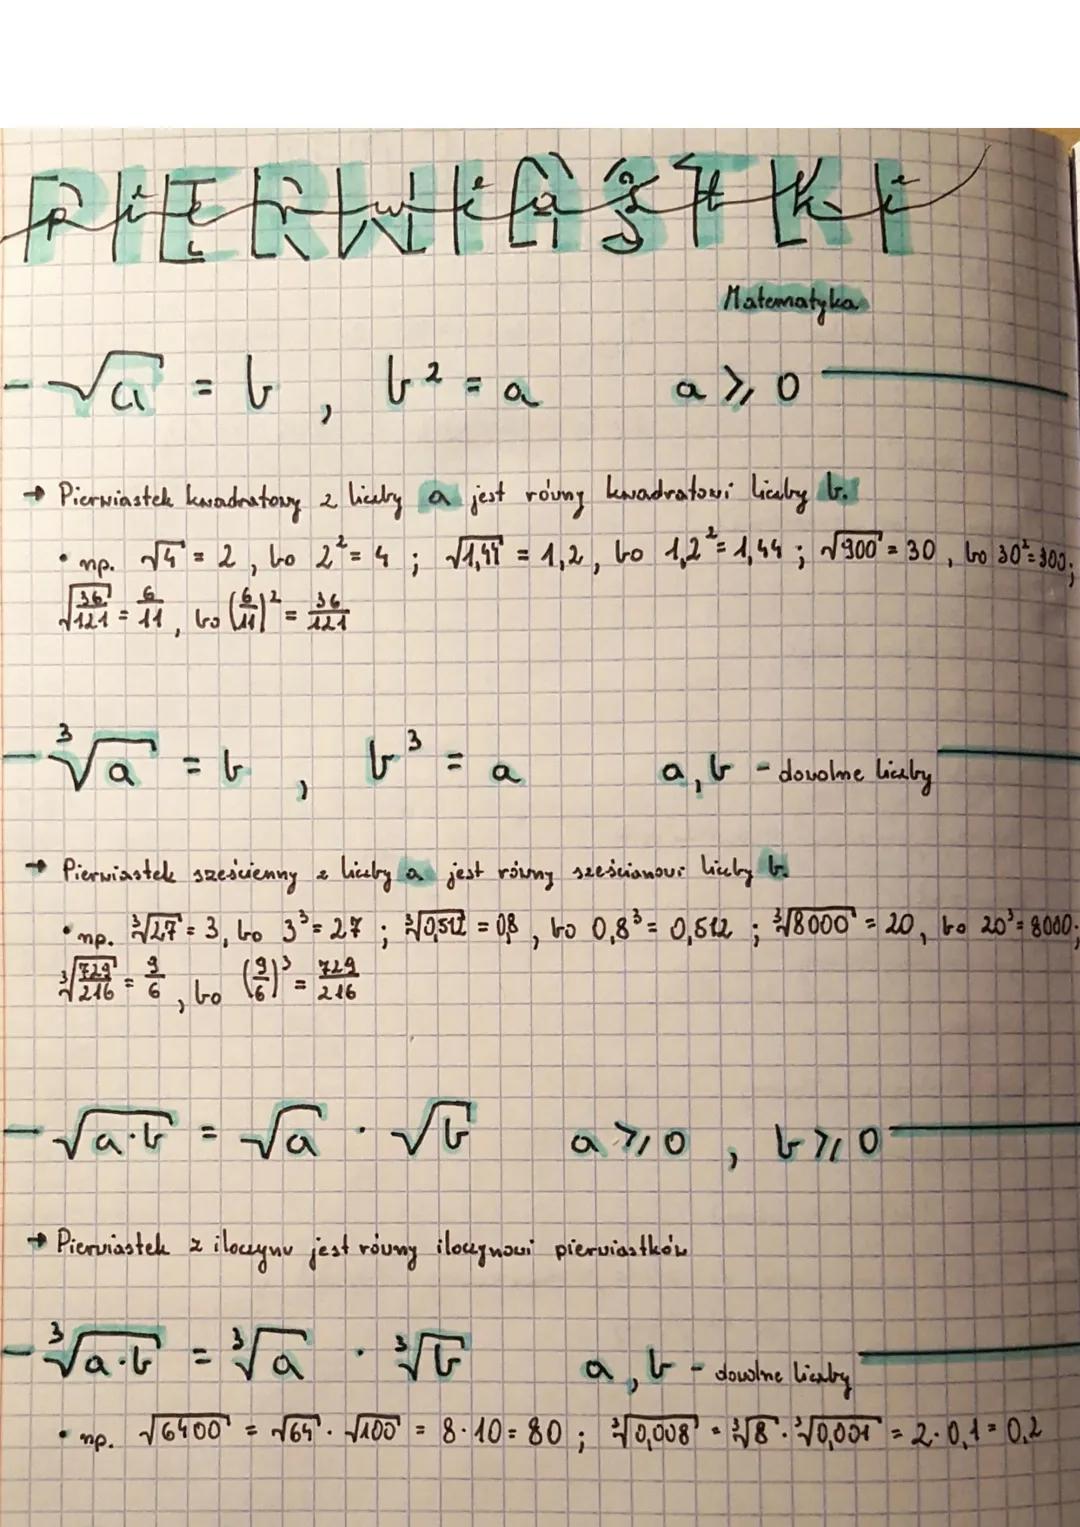 PIERWIASTKI
Matematyka
- √a = b , b² = a a ⩾ 0
→ Pierwiastek kwadratowy z liczby a jest równy kwadratowi liczby b.
• np. √4 = 2, bo 2² = 4 ; √1,44 = 1,2, bo 1,2² = 1,44 ; √900 = 30, bo 30² = 900;
√(36/121) = 6/11, bo (6/11)² = 36/121
- ³√a = b , b³ = a a, b - dowolne liczby
→ Pierwiastek sześcienny z liczby a jest równy sześcianowi liczby b.
• np. ³√27 = 3, bo 3³ = 27 ; ³√0,512 = 0,8, bo 0,8³ = 0,512 ; ³√8000 = 20, bo 20³ = 8000;
³√(729/216) = 9/6, bo (9/6)³ = 729/216
- √a·b = √a · √b a ⩾ 0 , b ⩾ 0
→ Pierwiastek z iloczynu jest równy iloczynowi pierwiastków
- ³√a·b = ³√a · ³√b a, b - dowolne liczby
• np. √6400 = √64 · √100 = 8·10 = 80 ; ³√0,008 = ³√8 · ³√0,001 = 2·0,1 = 0,2